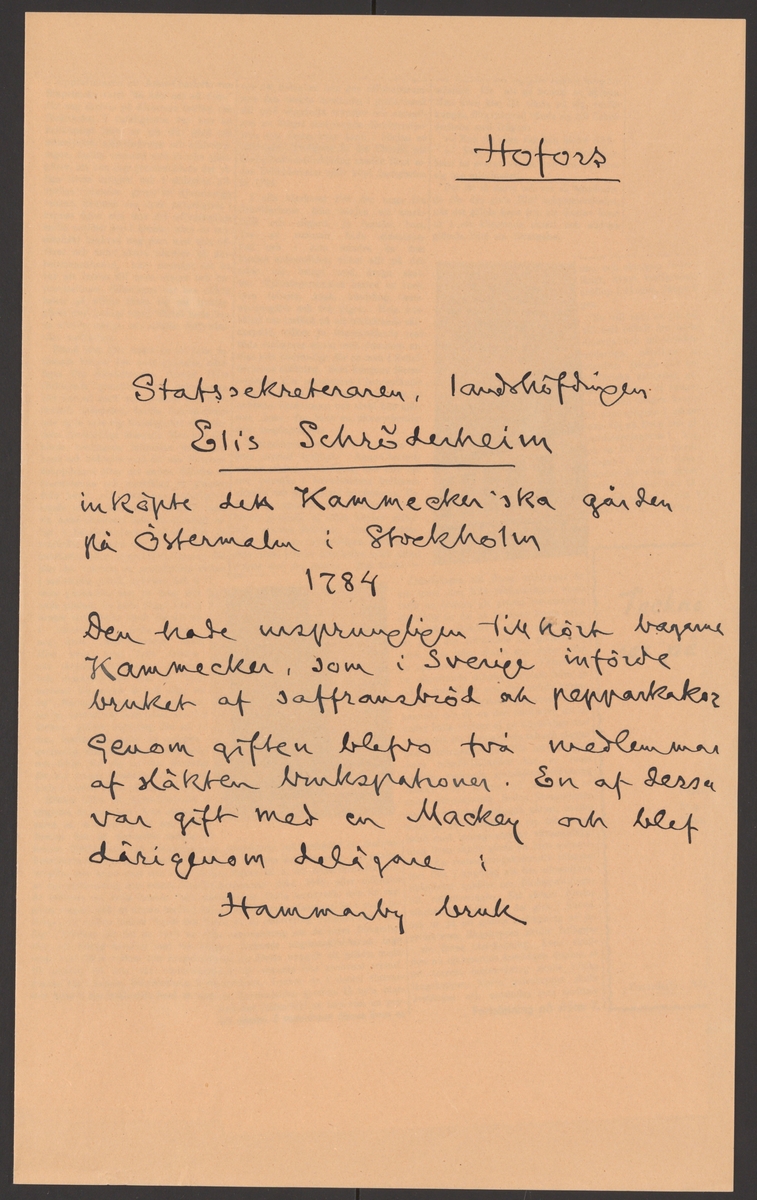 Hofors
Statssekreteraren, landshöfdingen
Elis Schröderheim
inköpte den Kammecker'ska gården
på Östermalm i Stockholm
1784
Den hade ursprungligen tillhört bagaren
Kammecker, som i Sverige införde
bruket af saffransbröd och pepparkakor
Genom giften blefvo två medlemmar
af släkten brukspatroner. En af dessa
var gift med en Mackey och blef
därigenom delägare i
Hammarby bruk